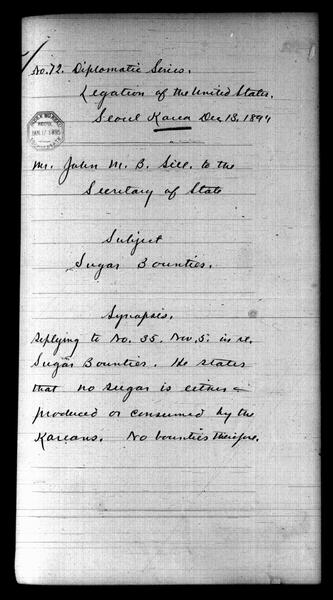 No. 72. Diplomatic Series.
Legation of the United States.
Seoul Korea Dec 13, 1894
JAN 17 1895
Mr. John M. B. Sill, to the
Secretary of State
Subject
Sugar Bounties.
Synopsis.
Replying to No. 35. Nov. 5. in re.
Sugar Bounties. He states
that no sugar is either
produced or consumed by the
Koreans. No bounties therefore.